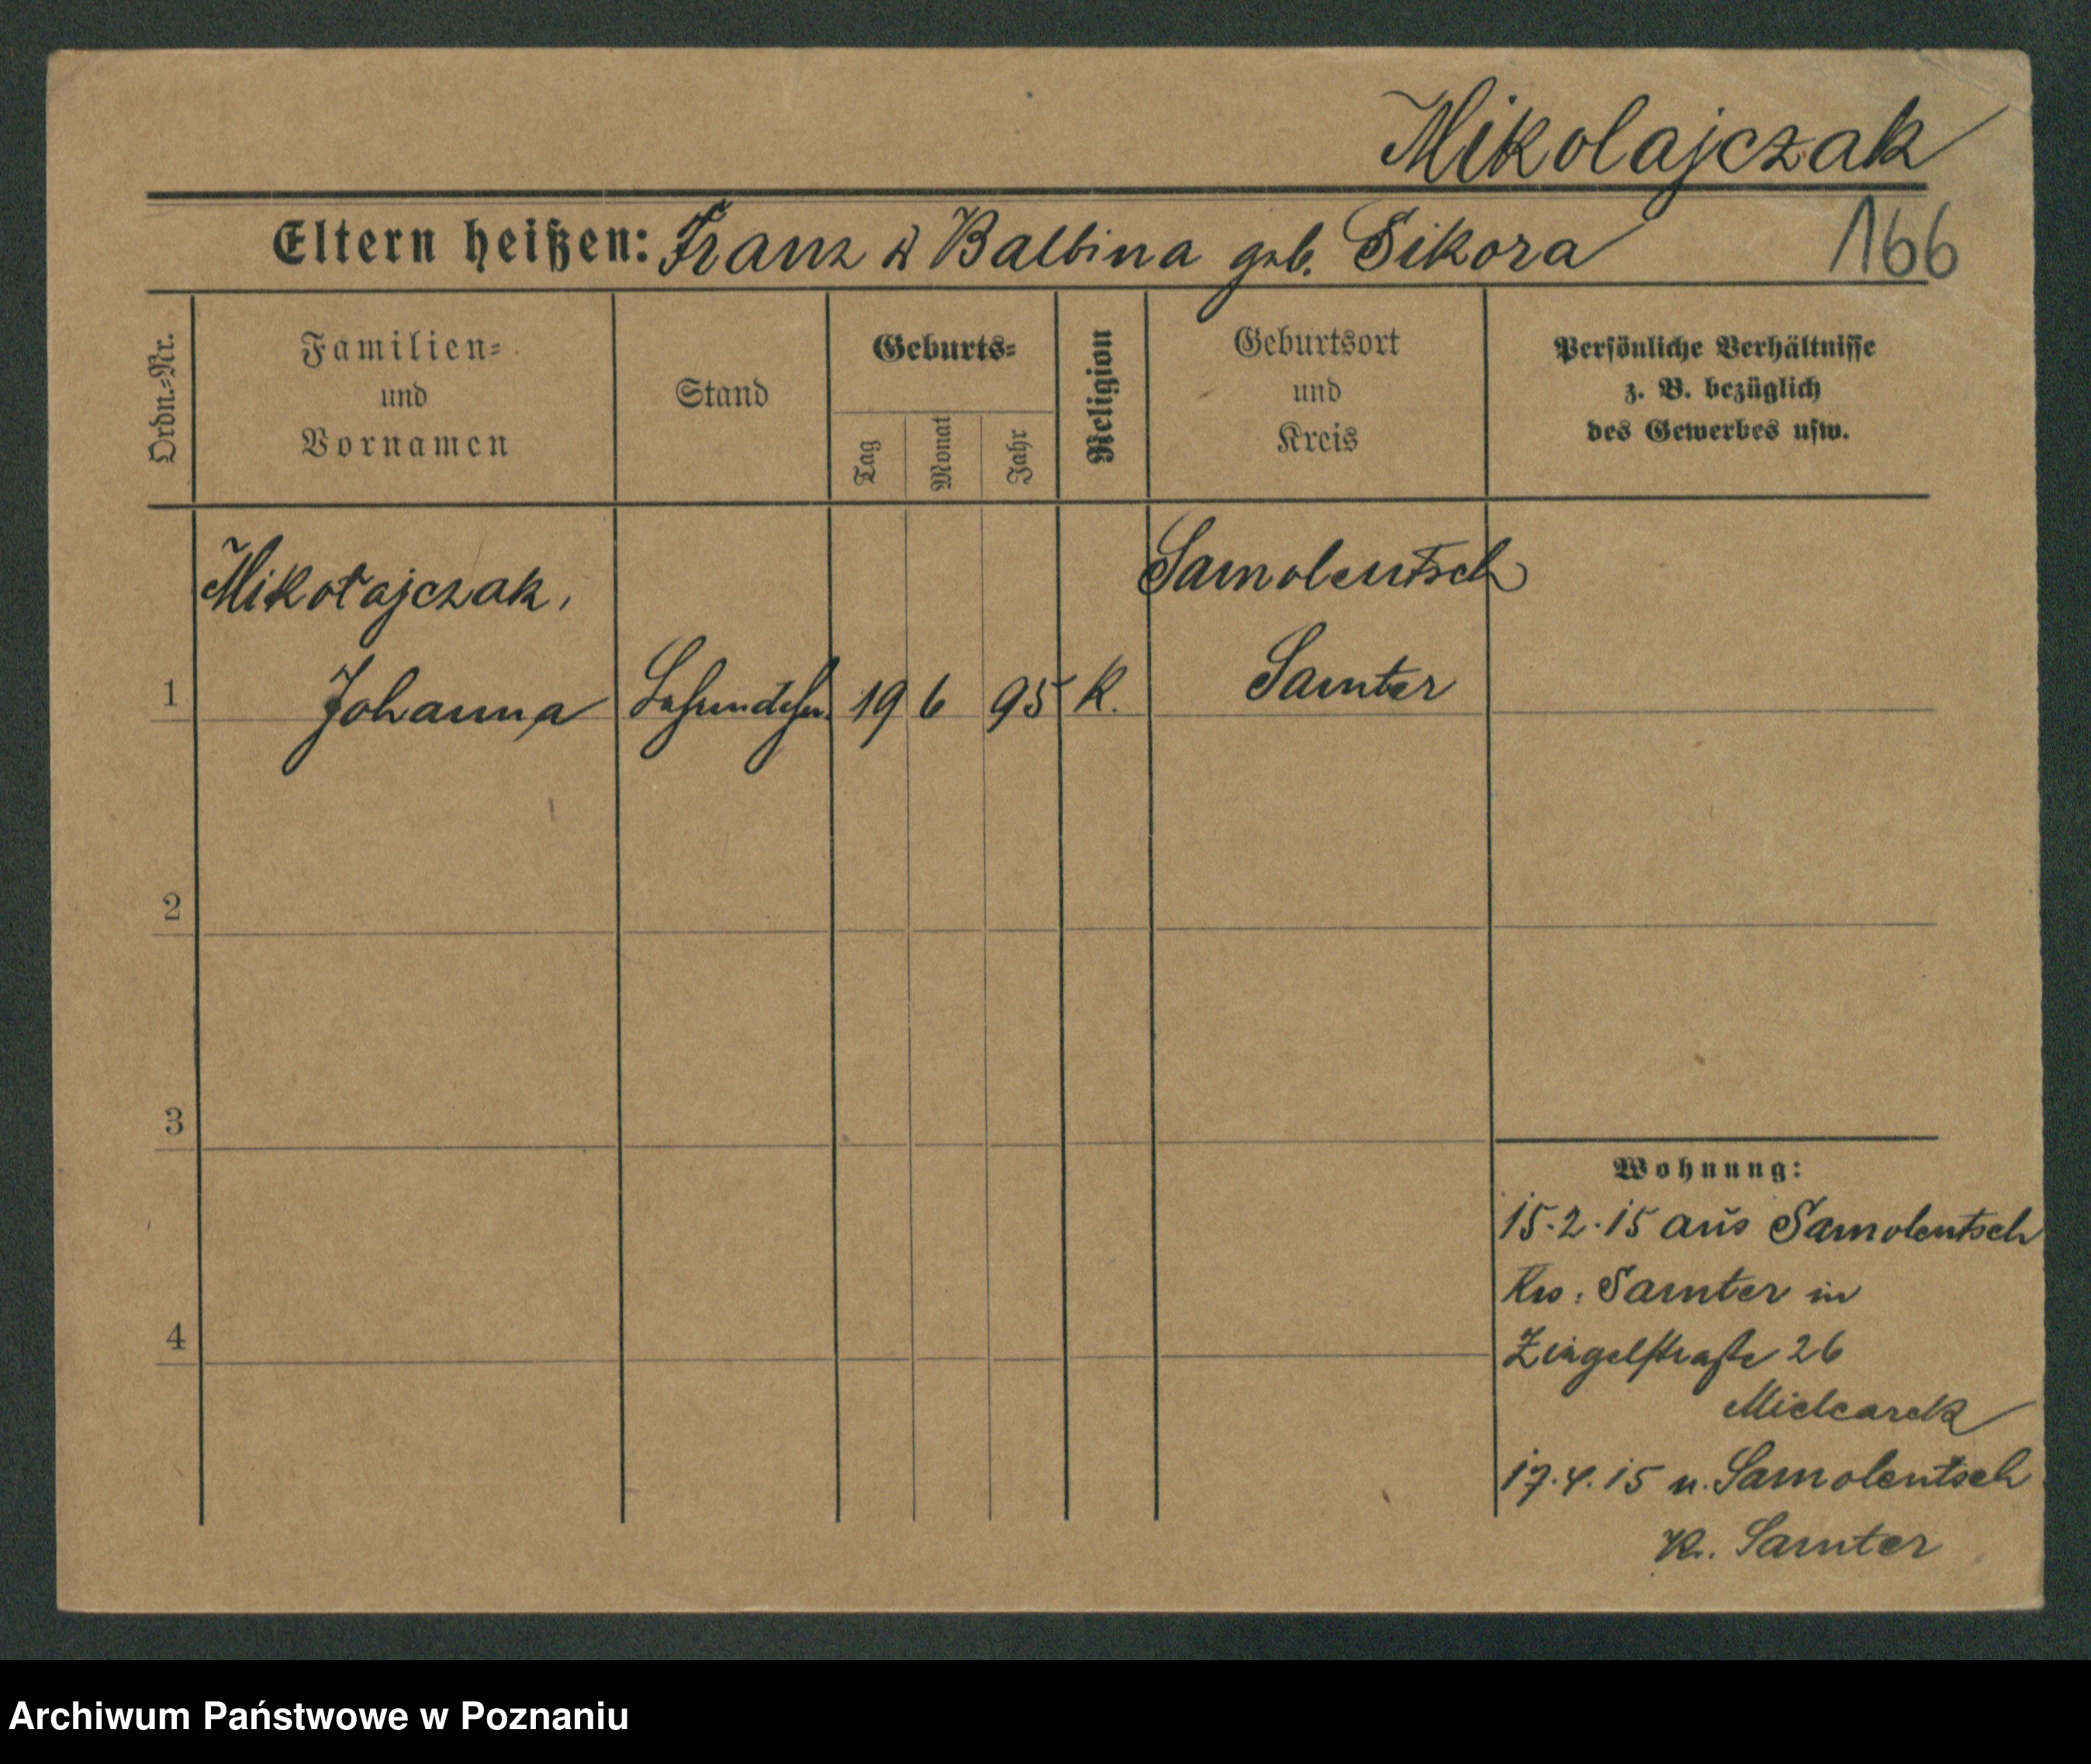 Mikolajczak
Eltern heißen: Franz u Balbina geb. Sikora
166
Ordn.=Nr.
Familien=
und
Vornamen
Stand
Geburts=
Tag
Monat
Jahr
Religion
Geburtsort
und
Kreis
Persönliche Verhältnisse
z. B. bezüglich
des Gewerbes usw.
Mikołajczak,
Samolentsch
1 Johanna 19 6 95 K. Samter
2
3
4
Wohnung:
15.2.15 aus Samolentsch
Krs: Samter in
Ziegelstraße 26
Mielcarek
17.4.15 n. Samolentsch
K. Samter
Archiwum Państwowe w Poznaniu